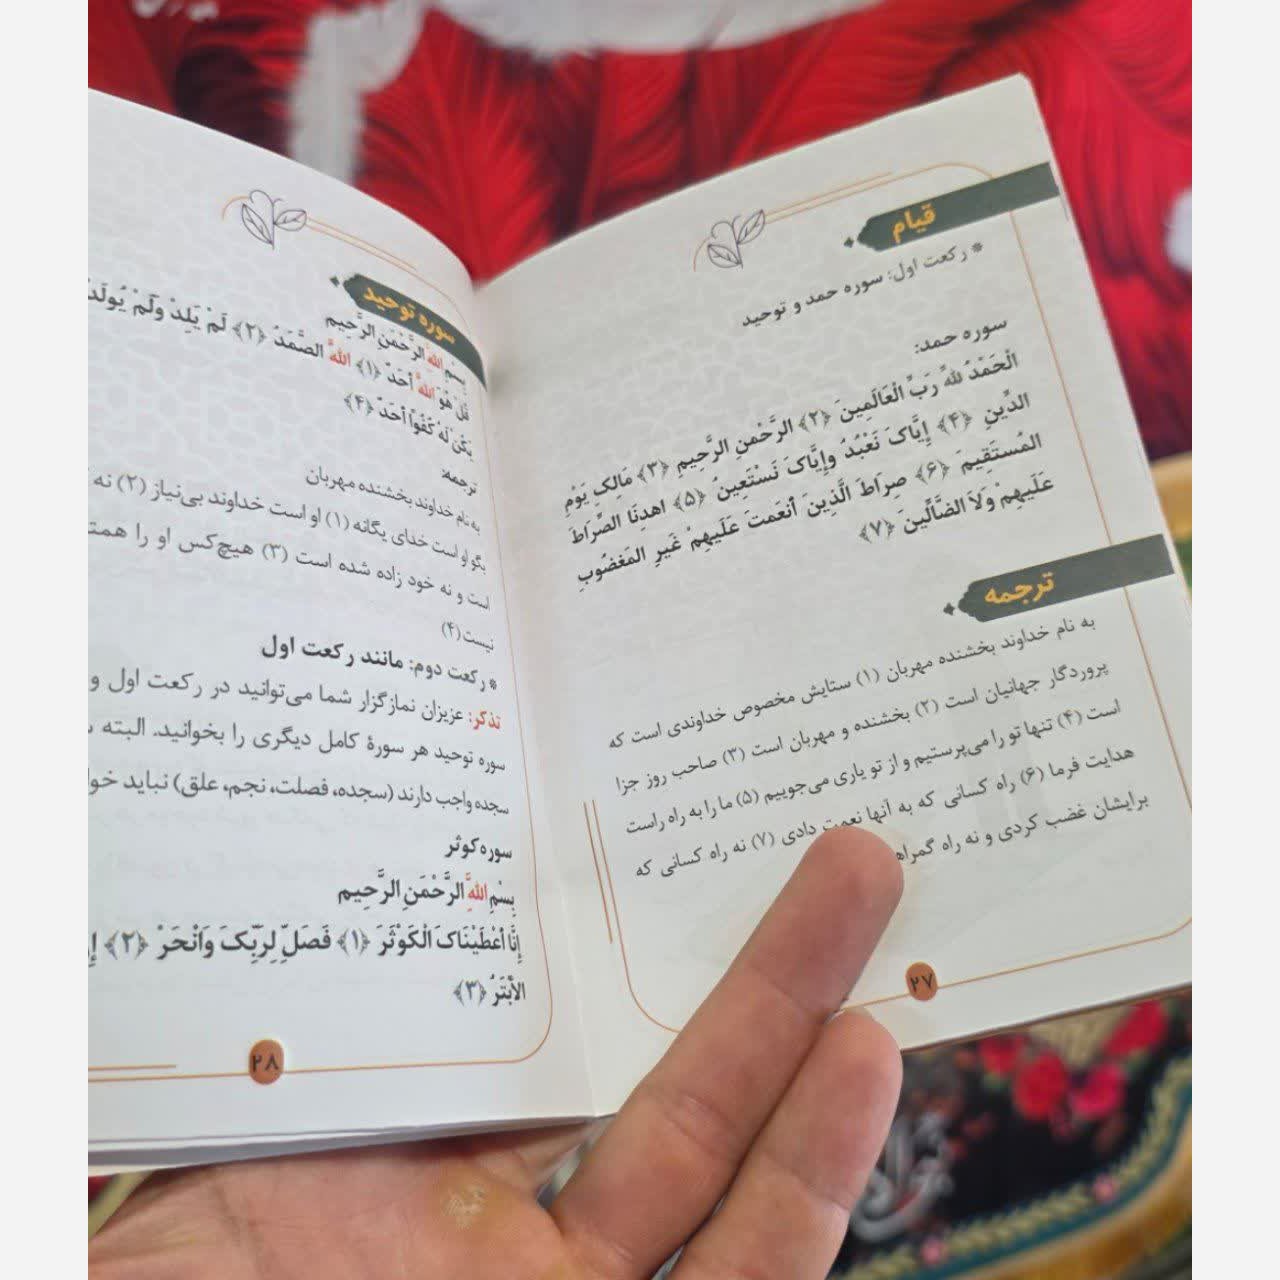 قیام
* رکعت اول: سوره حمد و توحید
سوره حمد:
الْحَمْدُ للهِ رَبِّ الْعَالَمِینَ ﴿۲﴾ الرَّحْمنِ الرَّحِیمِ ﴿۳﴾ مَالِکِ یَوْمِ
الدِّینِ ﴿۴﴾ إِیَّاکَ نَعْبُدُ وإِیَّاکَ نَسْتَعِینُ ﴿۵﴾ اهدِنَا الصِّرَاطَ
المُستَقِیمَ ﴿۶﴾ صِرَاطَ الَّذِینَ أنعَمتَ عَلَیهِمْ غَیرِ المَغضُوبِ
عَلَیهِمْ وَلاَ الضَّالِّینَ ﴿۷﴾
ترجمه
به نام خداوند بخشنده مهربان (۱) ستایش مخصوص خداوندی است که
پروردگار جهانیان است (۲) بخشنده و مهربان است (۳) صاحب روز جزا
است (۴) تنها تو را می‌پرستیم و از تو یاری می‌جوییم (۵) ما را به راه راست
هدایت فرما (۶) راه کسانی که به آنها نعمت دادی (۷) نه راه کسانی که
برایشان غضب کردی و نه راه
۲۷
سوره توحید
بِسْمِ اللهِ الرَّحْمَنِ الرَّحِیمِ
قُلْ هُوَ اللهُ أحَدٌ ﴿۱﴾ اللهُ الصَّمَدُ ﴿۲﴾ لَمْ یَلِدْ وَلَمْ یُولَدْ
یَکُنْ لَهُ کُفُوًا أحَدٌ ﴿۴﴾
ترجمه:
به نام خداوند بخشنده مهربان
بگو او است خدای یگانه (۱) او است خداوند بی‌نیاز (۲) نه
است و نه خود زاده شده است (۳) هیچ‌کس او را
نیست (۴)
* رکعت دوم: مانند رکعت اول
تذکر: عزیزان نمازگزار شما می‌توانید در رکعت اول و
سوره توحید هر سورهٔ کامل دیگری را بخوانید. البته
سجده واجب دارند (سجده، فصلت، نجم، علق) نباید
سوره کوثر
بِسْمِ اللهِ الرَّحْمَنِ الرَّحِیم
إِنَّا أعْطَیْنَاکَ الْکَوْثَرَ ﴿۱﴾ فَصَلِّ لِرَبِّکَ وَانْحَرْ ﴿۲﴾
الأبْتَرُ ﴿۳﴾
۲۸